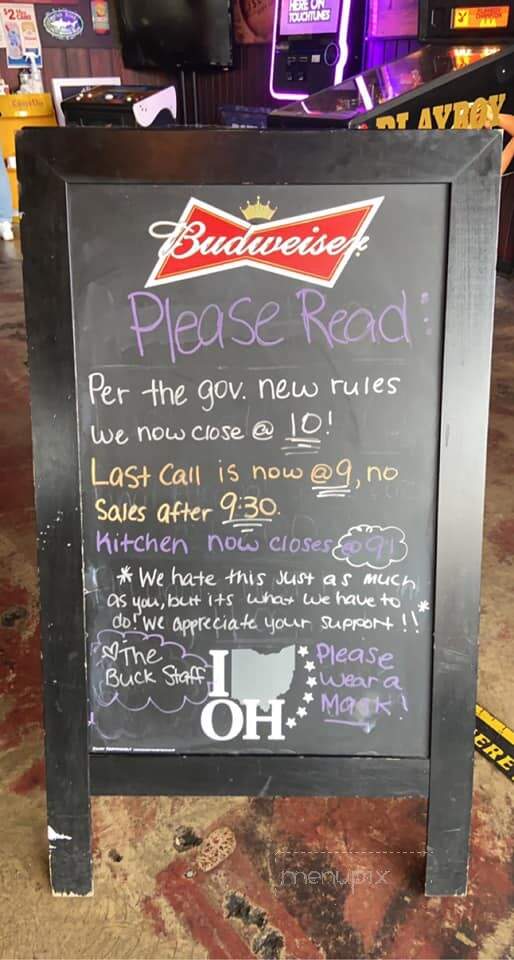 $2
HERE ON
TOUCHTUNES
PLAYBOY
Budweiser
Please Read:
Per the gov. new rules
we now close @ 10!
Last Call is now @9, no
Sales after 9:30.
Kitchen now closes @ 9!
* We hate this just as much
as you, but its what we have to
do! We appreciate your support!! *
♡The
Buck Staff
I
OH
Please
wear a
Mask!
menupix